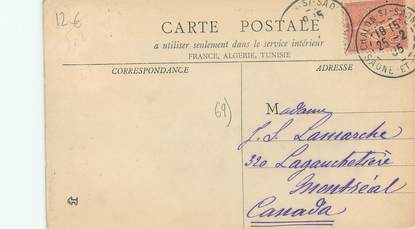 12€
CARTE POSTALE
a utiliser seulement dans le service intérieur
FRANCE, ALGERIE, TUNISIE
CORRESPONDANCE
ADRESSE
CHALON-S-SAO
19 15
25 - 2
05
SAONE ET
69)
Madame
J. L. Lamarche
320 Lagauchetière
Montréal
Canada